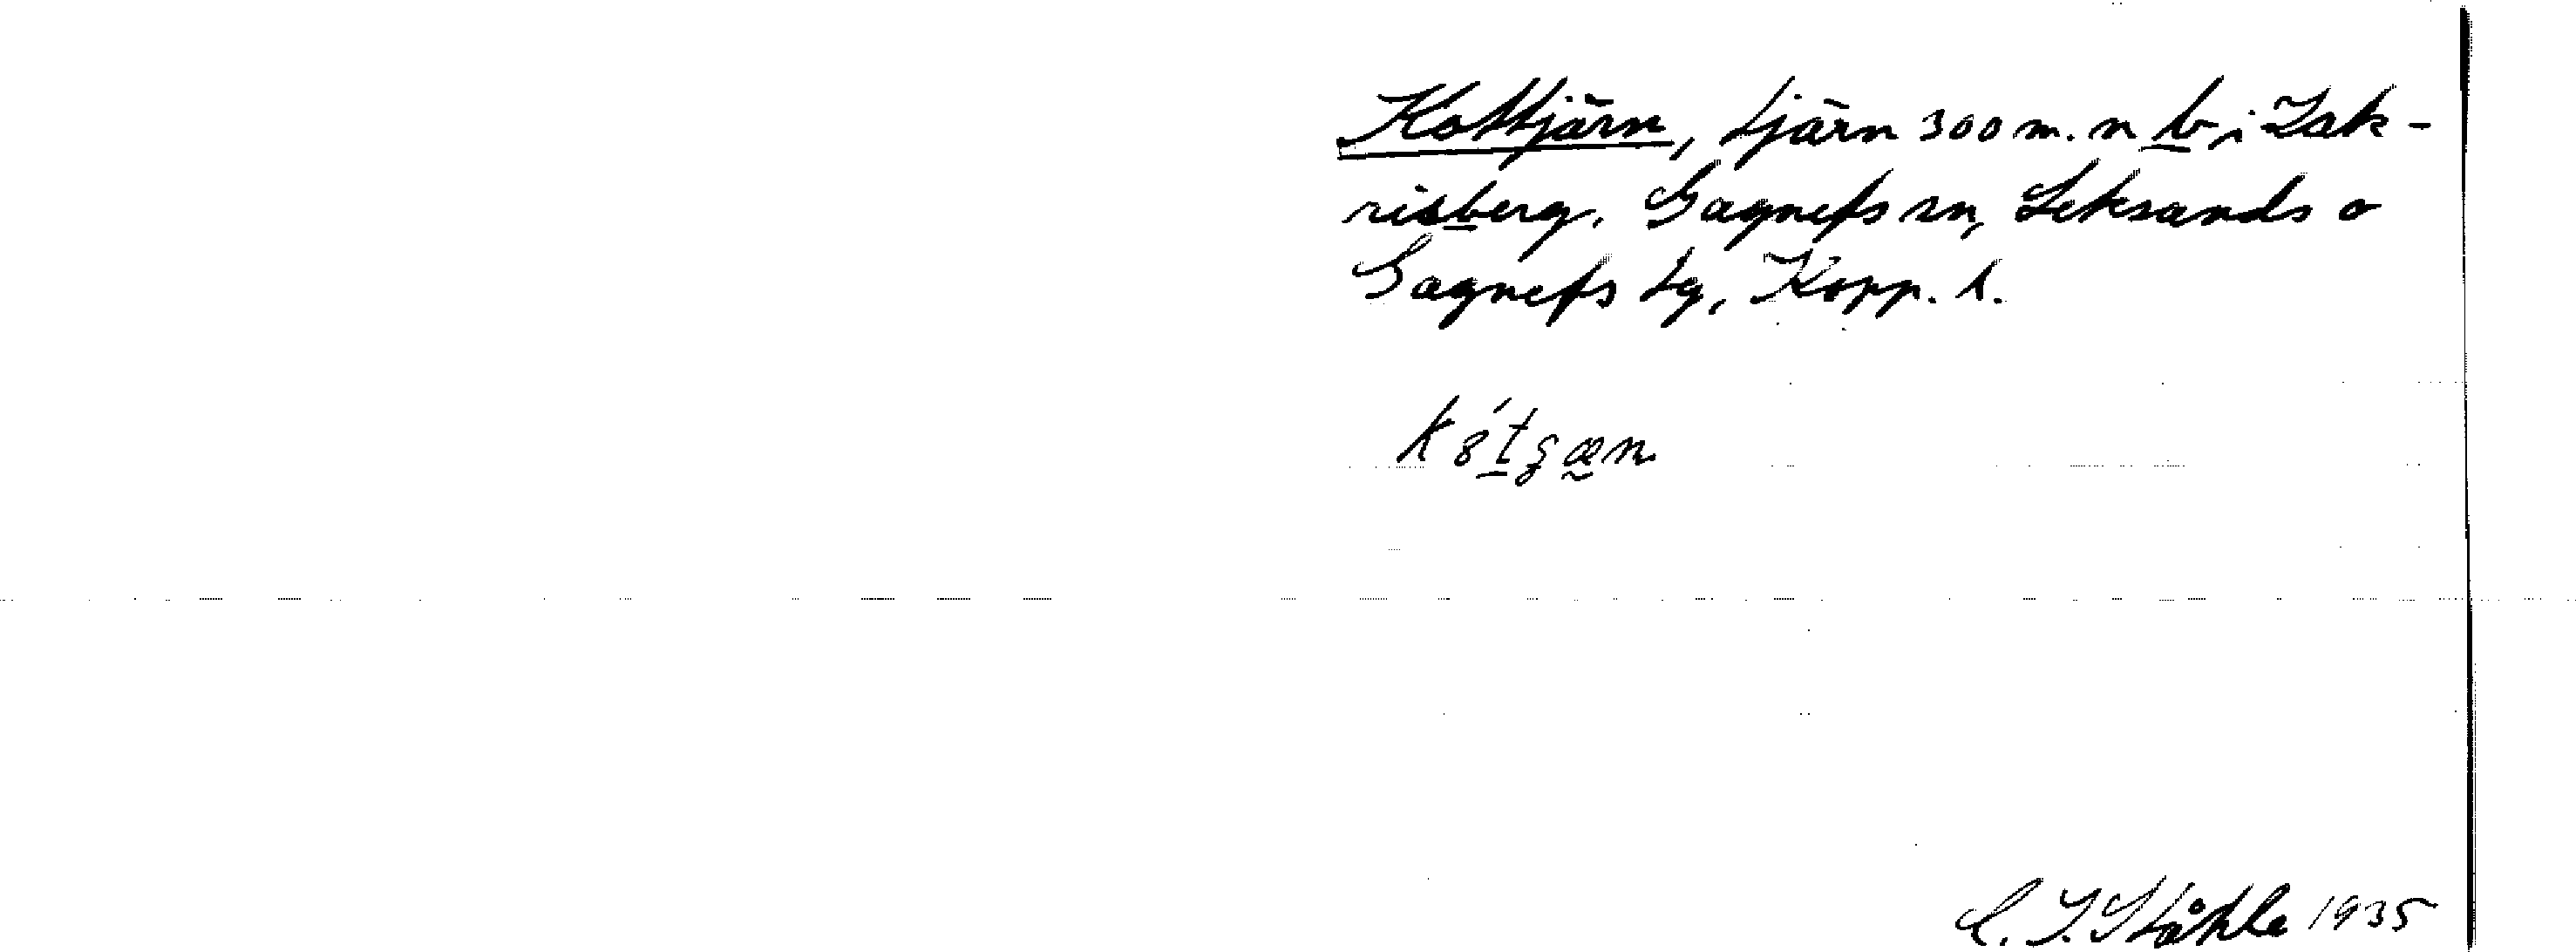 Kottjärn, tjärn 300 m. n b i Isk-
risberg. Gagnefs sn, Leksands o
Gagnefs tg, Kopp. l.
C. I. Ståhle 1935